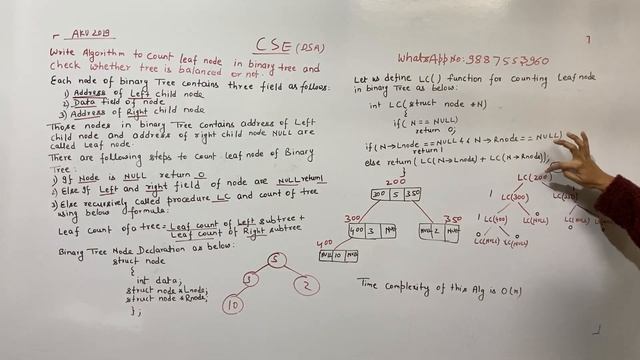 AKU 2019
CSE (DSA)
Write Algorithm to count leaf node in binary tree and
check whether tree is balanced or not.
Each node of binary Tree contains three field as follows:
1) Address of Left child node
2) Data field of node
3) Address of Right child node
Those nodes in binary Tree contains address of Left
child node and address of right child node NULL are
called Leaf node.
There are following steps to count leaf node of Binary
Tree:
1) If Node is NULL return 0
2) Else If Left and right field of node are NULL return 1
3) Else recursively called procedure LC and count of tree
using below formula:
Leaf count of a tree = Leaf count of Left subtree +
Leaf count of Right subtree
Binary Tree Node Declaration as below:
struct node
{
int data;
struct node *Lnode;
struct node *Rnode;
};
5
3
2
10
WhatsApp No: 9887557960
Let us define LC() function for counting Leaf node
in binary Tree as below:
int LC(struct node *N)
{
if(N == NULL)
return 0;
if(N→Lnode == NULL && N→Rnode == NULL)
return 1
else return(LC(N→Lnode) + LC(N→Rnode));
}
200
300 5 350
300
400 3 NULL
350
NULL 2 NULL
400
NULL 10 NULL
LC(200)
1
LC(300)
1
LC(400)
0
LC(NULL)
0
LC(NULL)
0
LC(NULL)
Time complexity of this Alg is O(n)